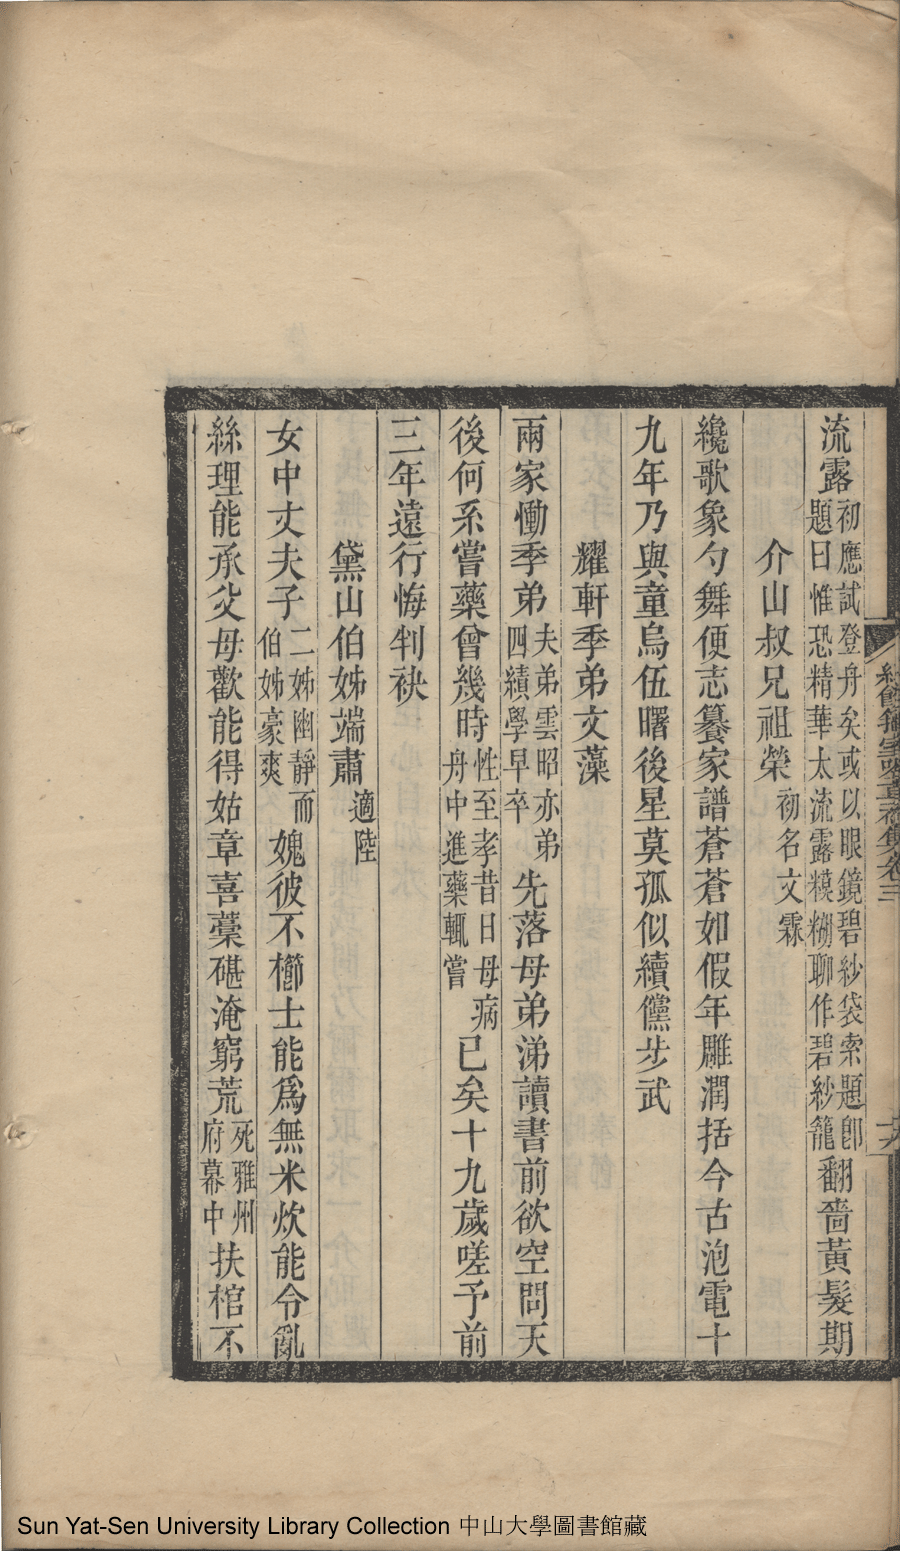 流露初應試登舟矣或以眼鏡碧紗袋索題卽題曰惟恐精華太流露糢糊聊作碧紗籠翻嗇黃髮期
介山叔兄祖榮初名文霖
纔歌象勺舞便志纂家譜蒼蒼如假年雕潤括今古泡電十
九年乃與童烏伍曙後星莫孤似續儻步武
耀軒季弟文藻
兩家慟季弟夫弟雲昭亦弟四績學早卒先落母弟涕讀書前欲空問天
後何系嘗藥曾幾時性至孝昔日母病舟中進藥輒嘗已矣十九歲嗟予前
三年遠行悔判袂
黛山伯姊端肅適陸
女中丈夫子二姊幽靜而伯姊豪爽媿彼不櫛士能爲無米炊能令亂
絲理能承父母歡能得姑章喜藁碪淹窮荒死雅州府幕中扶棺不
卷三
十六
Sun Yat-Sen University Library Collection 中山大學圖書館藏